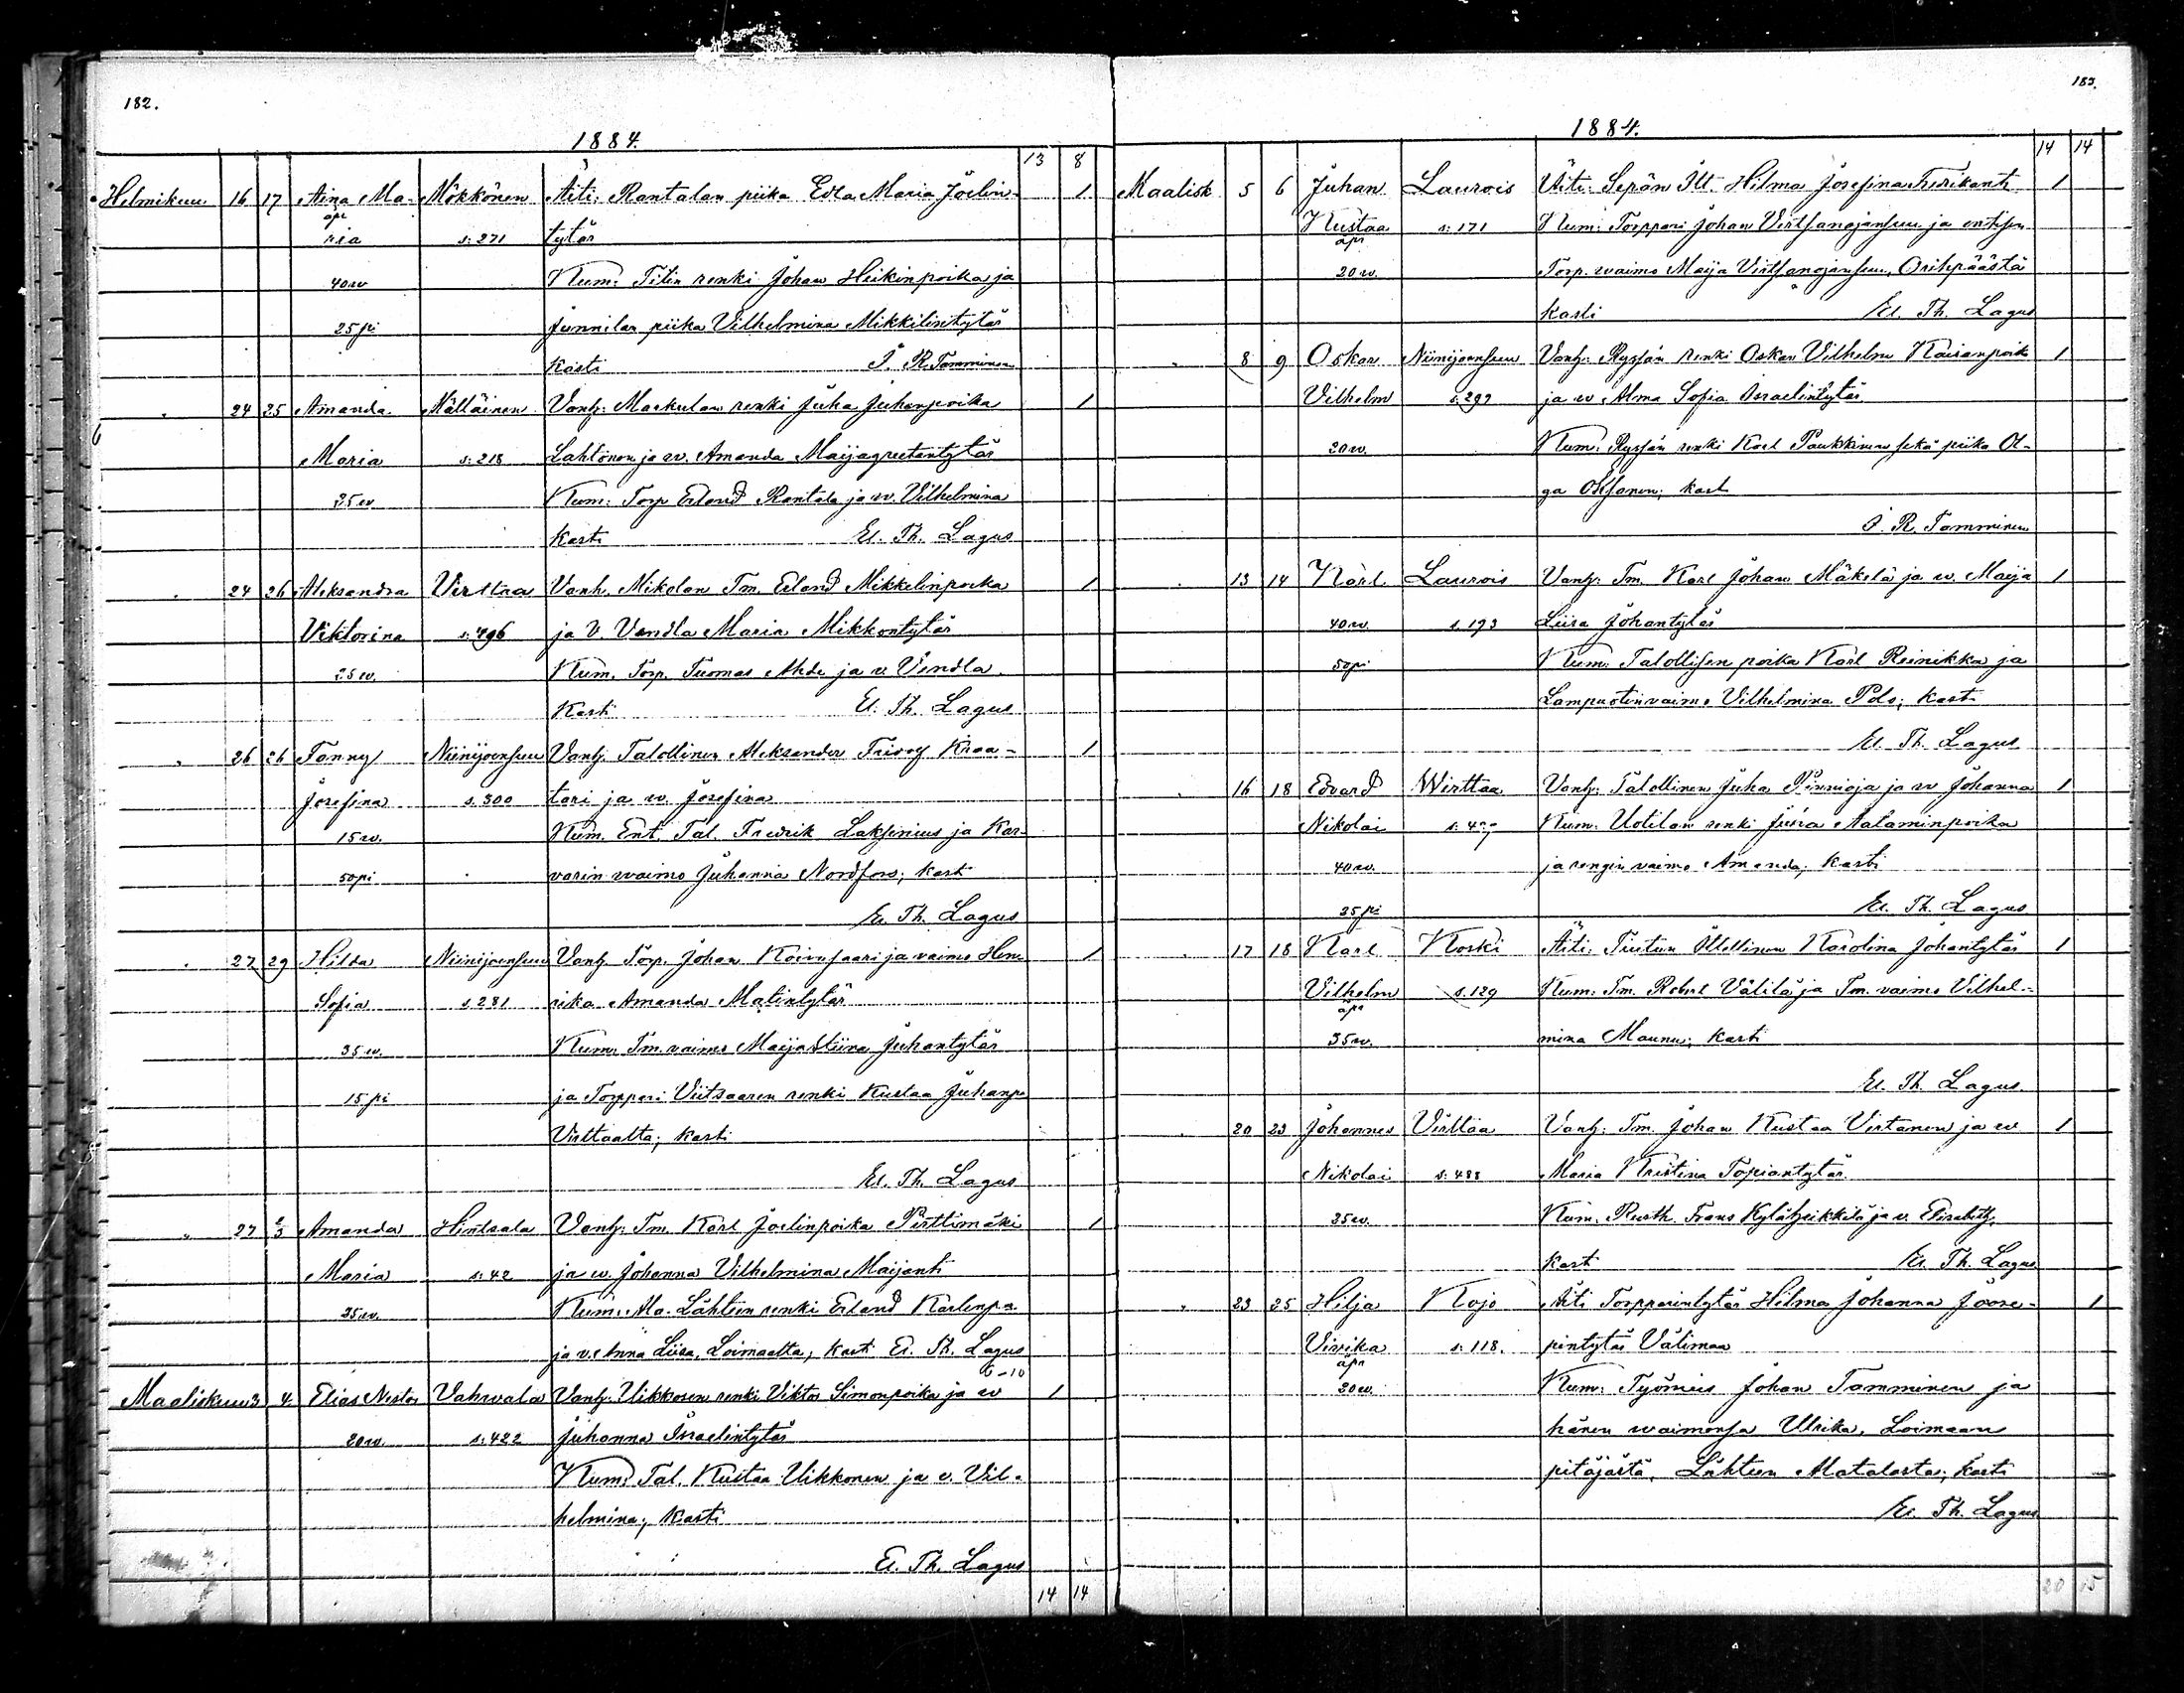 182.
1884.
13 8
Helmikuu 16 17 Aina Ma- Mökkönen Äiti: Rantalan piika Edla Maria Joelin- 1
äpr
ria s. 271 tytär
40 w Kum: Titin renki Johan Heikinpoika ja
25 pi Junnilan piika Vilhelmina Mikkilintytär
kasti J. R. Tamminen
" 24 25 Amanda Mälläinen Vanh: Markulan renki Juha Juhanpoika 1
Maria s. 218 Lahtonen ja w. Amanda Maijagreetantytär
35 w Kum: Torp Erland Rantala ja w. Vilhelmina
kasti El. Th. Lagus
" 24 26 Aleksandra Virttaa Vanh. Mikolan Tm. Erland Mikkelinpoika 1
Viktorina s. 496 ja V. Vendla Maria Mikkontytär
25 w. Kum. Torp. Tuomas Ahde ja w Vendla.
Kasti El. Th. Lagus
" 26 26 Fanny Niinijoensuu Vanh. Talollinen Aleksander Kraa- 1
Josefina s. 300 tari ja w. Josefina
15 w. Kum. Ent. Tal. Fredrik Laksenius ja Kar-
50 pi varin waimo Juhanna Nordfors; kast
El. Th. Lagus
" 27 29 Hilda Niinijoensuu Vanh. Torp. Johan Koivusaari ja vaimo Hen- 1
Sofia s. 281 rika Amanda Matintytär
35 w. Kum. Tm. vaimo Maija Stiina Juhantytär
15 pi ja Torppari Viitsaaren renki Kustaa Juhanp.
Virttaalta; kasti
El. Th. Lagus
" 27 2/3 Amanda Hirtsala Vanh: Tm. Karl Joelinpoika Pirttimäki 1
Maria s. 42 ja w. Johanna Vilhelmina Maijanti
35 w. Kum: Ala-Lähteen renki Erland Karlenp.
ja v. Anna Liisa, Loimaalta; kasti El. Th. Lagus
6-10
Maaliskuu 3 4. Elias Nestor Vahvala Vanh: Uikkosen renki Viktor Simonpoika ja w 1
20 w. s. 422 Juhanna Israelintytär
Kum: Tal. Kustaa Uikkonen ja v. Vil-
helmina; kasti
El. Th. Lagus
14 14
183.
1884.
14 14
Maalisk 5 6 Juhan Laurois Äiti: Sepän Itt. Hilma Josefina Fredrikant. 1
Kustaa s. 171 Kum: Torppari Johan Virtsanojansuu ja entisen
äpr
20 w. Torp. waimo Maija Virtsanojansuu, Orihpäästä
kasti El. Th. Lagus
" 8 9 Oskar Niinijoensuu Vanh: Ryssän renki Oskar Vilhelm Kaisanpoik 1
Vilhelm s. 299 ja w Alma Sofia Israelintytär
20 w. Kum: Ryssän renki Karl Paukkunen sekä piika Ol-
ga Oksanen; kast
J. R. Tamminen
" 13 14 Karl Laurois Vanh. Tm. Karl Johan Mäkelä ja w. Maija 1
40 w. s. 193 Liisa Johantytär
50 pi Kum. Talollisen poika Karl Reinikka ja
Lampuotin vaimo Vilhelmina Polo; kasti
El. Th. Lagus
" 16 18 Edvard Wirttaa Vanh: Talollinen Juha Pinnioja ja w Johanna 1
Nikolai Kum: Uotilan renki Juha Aataminpoika
40 w. ja rengin vaimo Amanda; kasti
35 pi El. Th. Lagus
" 17 18 Karl Koski Äiti: Itsellinen Karolina Johantytär 1
Vilhelm s. 129 Kum: Tm. Robert Välilä ja Tm. vaimo Vilhel-
äpr
35 w. mina Maunu; kasti
El. Th. Lagus
" 20 23 Johannes Virttaa Vanh: Tm. Johan Kustaa Virtanen ja w 1
Nikolai s. 488 Maria Kristina Topiantytär
35 w. Kum. Rusth. Frans Kyläheikkilä ja v. Elisabeth,
kast El. Th. Lagus
" 23 25 Hilja Kojo Äiti Torpparintytär Hilma Johanna Joose- 1
Viivika s. 118. pintytär Välimaa
äpr
20 w. Kum: Työmies Johan Tamminen ja
hänen waimonsa Ulrika, Loimaan
pitäjästä, Lähteen Matalasta; kasti
El. Th. Lagus
20 15